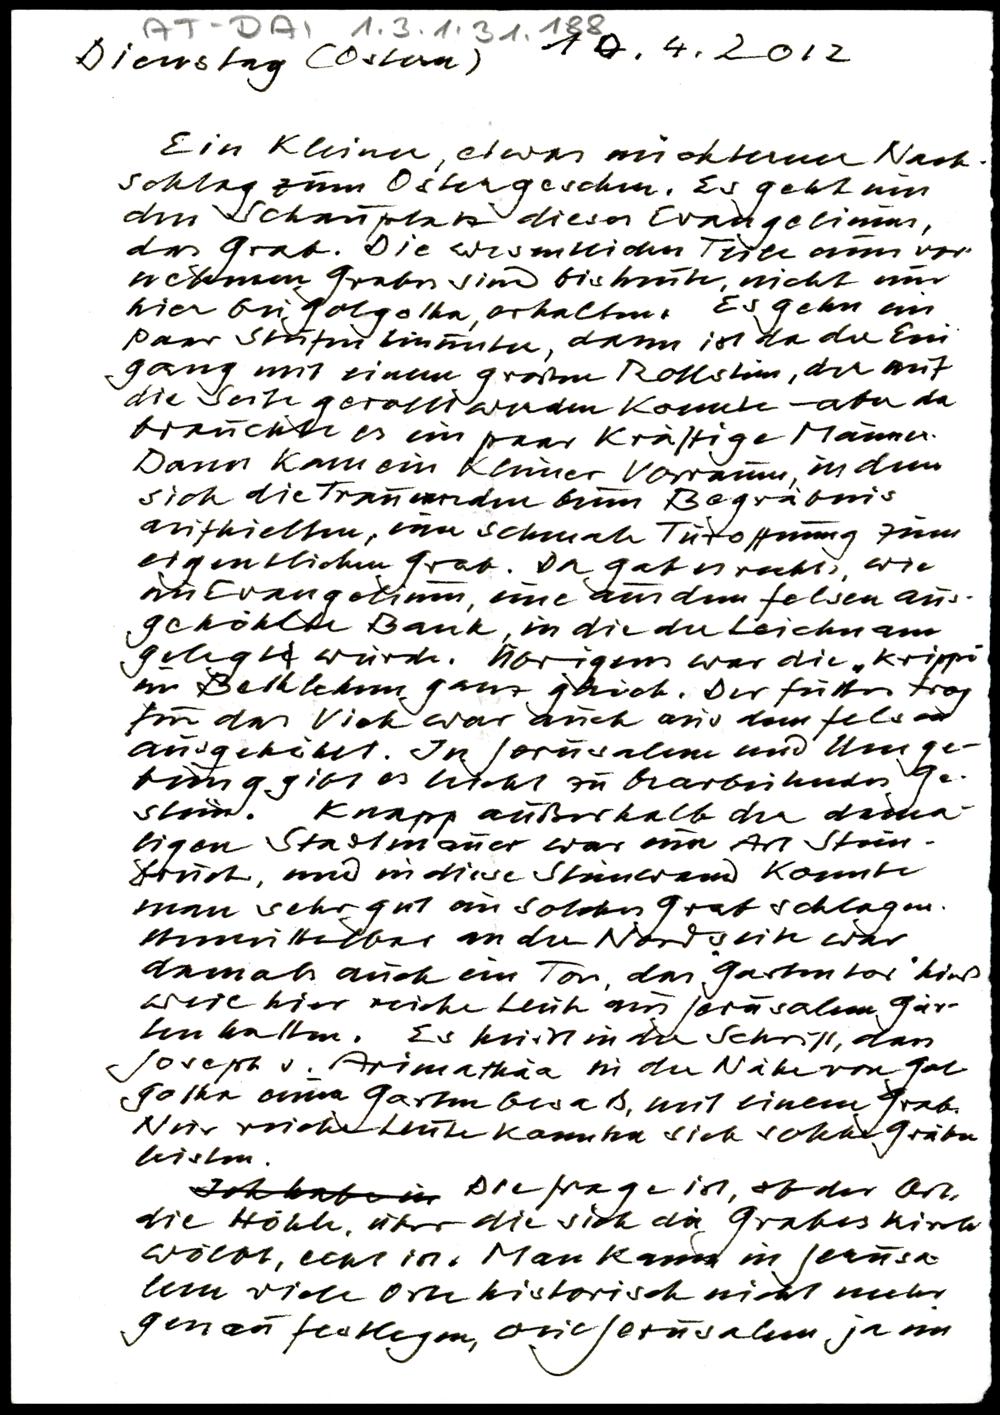 AT-DAI 1.3.1.31.188
Dienstag (Ostern) 10.4.2012
Ein kleiner, etwas nüchterner Nach-
schlag zum Ostergeschen. Es geht um
den Schauplatz dieses Evangeliums,
das Grab. Die wesentlichen Teile eines vor-
nehmen Grabes sind bis heute, nicht nur
hier bei Golgotha, erhalten. Es gehn ein
paar Stufen hinunter, dann ist da der Ein
gang mit einem großen Rollstein, der auf
die Seite gerollt werden konnte – aber da
brauchte es ein paar kräftige Männer.
Dann kam ein kleiner Vorraum, in dem
sich die Trauernden beim Begräbnis
aufhielten, eine schmale Türöffnung zum
eigentlichen Grab. Da gab es rechts, wie
im Evangelium, eine aus dem Felsen aus-
gehöhlte Bank, in die der Leichnam
gelegt wurde. Übrigens war die „Krippe"
in Bethlehem ganz gleich. Der Futtertrog
für das Vieh war auch aus dem Felsen
ausgehöhlt. In Jerusalem und Umge-
bung gibt es leicht zu bearbeitendes Ge-
stein. Knapp außerhalb der dama-
ligen Stadtmauer war eine Art Stein-
bruch, und in diese Steinwand konnte
man sehr gut ein solches Grab schlagen.
Unmittelbar an der Nordseite war
damals auch ein Tor, das "Gartentor" hieß
weil hier reiche Leute aus Jerusalem Gär-
ten hatten. Es heißt in der Schrift, dass
Joseph v. Arimathäa in der Nähe von Gol
gotha einen Garten besaß, mit einem Grab.
Nur reiche Leute konnten sich solche Gräber
leisten.
Ich habe in Die Frage ist, ob der Ort,
die Höhle, über die sich die Grabeskirche
wölbt, echt ist. Man kann in Jerusa-
lem viele Orte historisch nicht mehr
genau festlegen, weil Jerusalem ja im